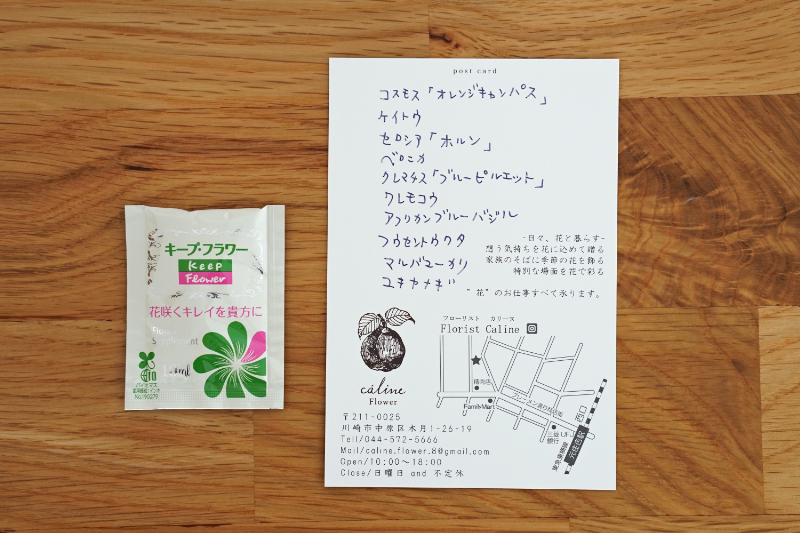 キープ・フラワー
Keep
Flower
花咲くキレイを貴方に
バイオマス
No.190279
post card
コスモス「オレンジキャンパス」
ケイトウ
セロシア「ホルン」
ベロニカ
クレマチス「ブルーピルエット」
ワレモコウ
アフリカンブルーバジル
フウセントウワタ
マルバユーカリ
ユキヤナギ
-日々、花と暮らす-
想う気持ちを花に込めて贈る
家族のそばに季節の花を飾る
特別な場面を花で彩る
"花"のお仕事すべて承ります。
フローリスト カリーヌ
Florist Caline
câline
Flower
精肉店
FamilyMart
ブレーメン通り商店街
三菱UFJ
銀行
西口
元住吉駅
東急東横線
〒211-0025
川崎市中原区木月1-26-19
Tell/044-572-5666
Mail/caline.flower.8@gmail.com
Open/10:00〜18:00
Close/日曜日 and 不定休